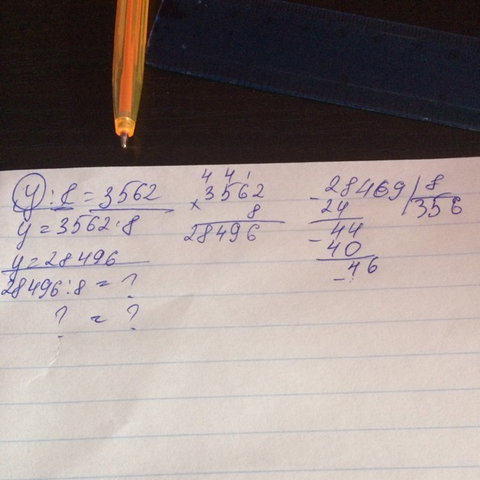 y : 8 = 3562
y = 3562·8
y = 28496
28496:8 = ?
? = ?
4 4 1
× 3562
8
28496
- 28469 | 8
24 | 356
- 44
40
- 46